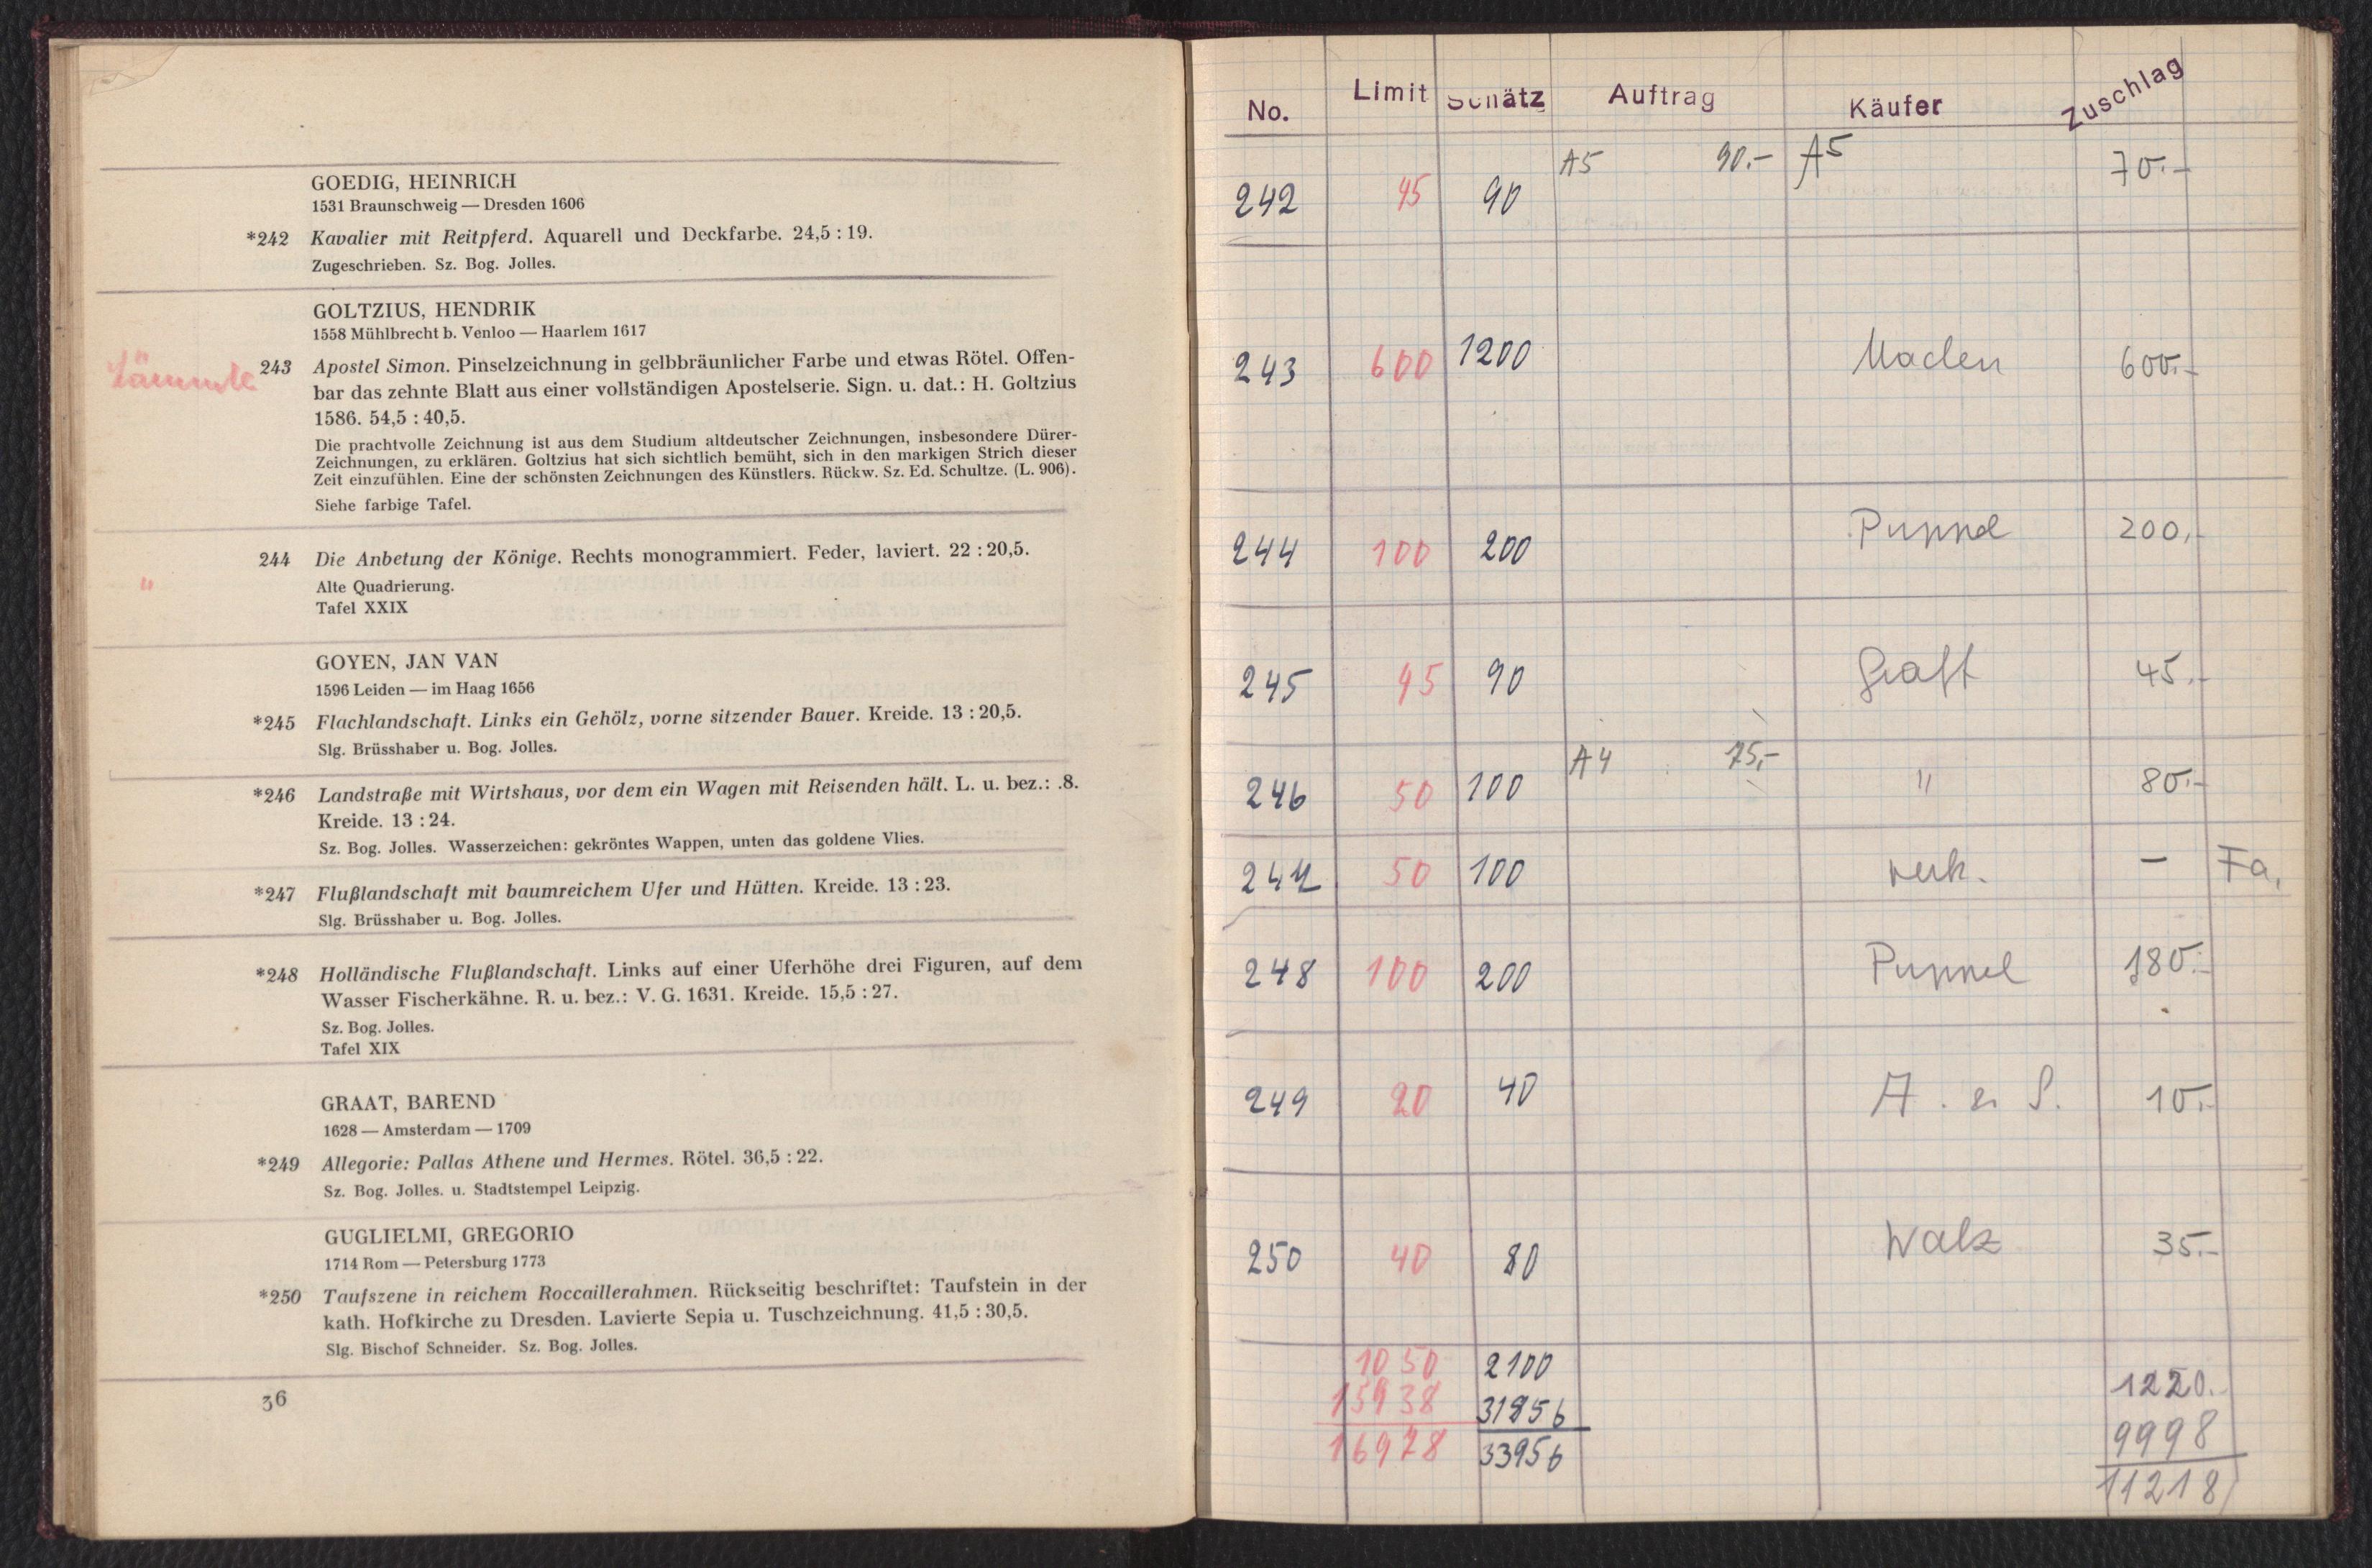 GOEDIG, HEINRICH
1531 Braunschweig — Dresden 1606
*242 Kavalier mit Reitpferd. Aquarell und Deckfarbe. 24,5 : 19.
Zugeschrieben. Sz. Bog. Jolles.
GOLTZIUS, HENDRIK
1558 Mühlbrecht b. Venloo — Haarlem 1617
Lämmle 243 Apostel Simon. Pinselzeichnung in gelbbräunlicher Farbe und etwas Rötel. Offen-
bar das zehnte Blatt aus einer vollständigen Apostelserie. Sign. u. dat.: H. Goltzius
1586. 54,5 : 40,5.
Die prachtvolle Zeichnung ist aus dem Studium altdeutscher Zeichnungen, insbesondere Dürer-
Zeichnungen, zu erklären. Goltzius hat sich sichtlich bemüht, sich in den markigen Strich dieser
Zeit einzufühlen. Eine der schönsten Zeichnungen des Künstlers. Rückw. Sz. Ed. Schultze. (L. 906).
Siehe farbige Tafel.
244 Die Anbetung der Könige. Rechts monogrammiert. Feder, laviert. 22 : 20,5.
" Alte Quadrierung.
Tafel XXIX
GOYEN, JAN VAN
1596 Leiden — im Haag 1656
*245 Flachlandschaft. Links ein Gehölz, vorne sitzender Bauer. Kreide. 13 : 20,5.
Slg. Brüsshaber u. Bog. Jolles.
*246 Landstraße mit Wirtshaus, vor dem ein Wagen mit Reisenden hält. L. u. bez.: .8.
Kreide. 13 : 24.
Sz. Bog. Jolles. Wasserzeichen: gekröntes Wappen, unten das goldene Vlies.
*247 Flußlandschaft mit baumreichem Ufer und Hütten. Kreide. 13 : 23.
Slg. Brüsshaber u. Bog. Jolles.
*248 Holländische Flußlandschaft. Links auf einer Uferhöhe drei Figuren, auf dem
Wasser Fischerkähne. R. u. bez.: V. G. 1631. Kreide. 15,5 : 27.
Sz. Bog. Jolles.
Tafel XIX
GRAAT, BAREND
1628 — Amsterdam — 1709
*249 Allegorie: Pallas Athene und Hermes. Rötel. 36,5 : 22.
Sz. Bog. Jolles. u. Stadtstempel Leipzig.
GUGLIELMI, GREGORIO
1714 Rom — Petersburg 1773
*250 Taufszene in reichem Roccaillerahmen. Rückseitig beschriftet: Taufstein in der
kath. Hofkirche zu Dresden. Lavierte Sepia u. Tuschzeichnung. 41,5 : 30,5.
Slg. Bischof Schneider. Sz. Bog. Jolles.
36
No. Limit Schätz Auftrag Käufer Zuschlag
242 45 90 A5 90.- A5 70.-
243 600 1200 600.-
244 100 200 Puppel 200,-
245 45 90 45.-
246 50 100 A4 75,- " 80.-
247 50 100 rück. — Fa.
248 100 200 Puppel 180.-
249 20 40 A. & S. 10.-
250 40 80 Walz 35.-
1050 2100 1220.
15938 31856 9998
16978 33956 11218